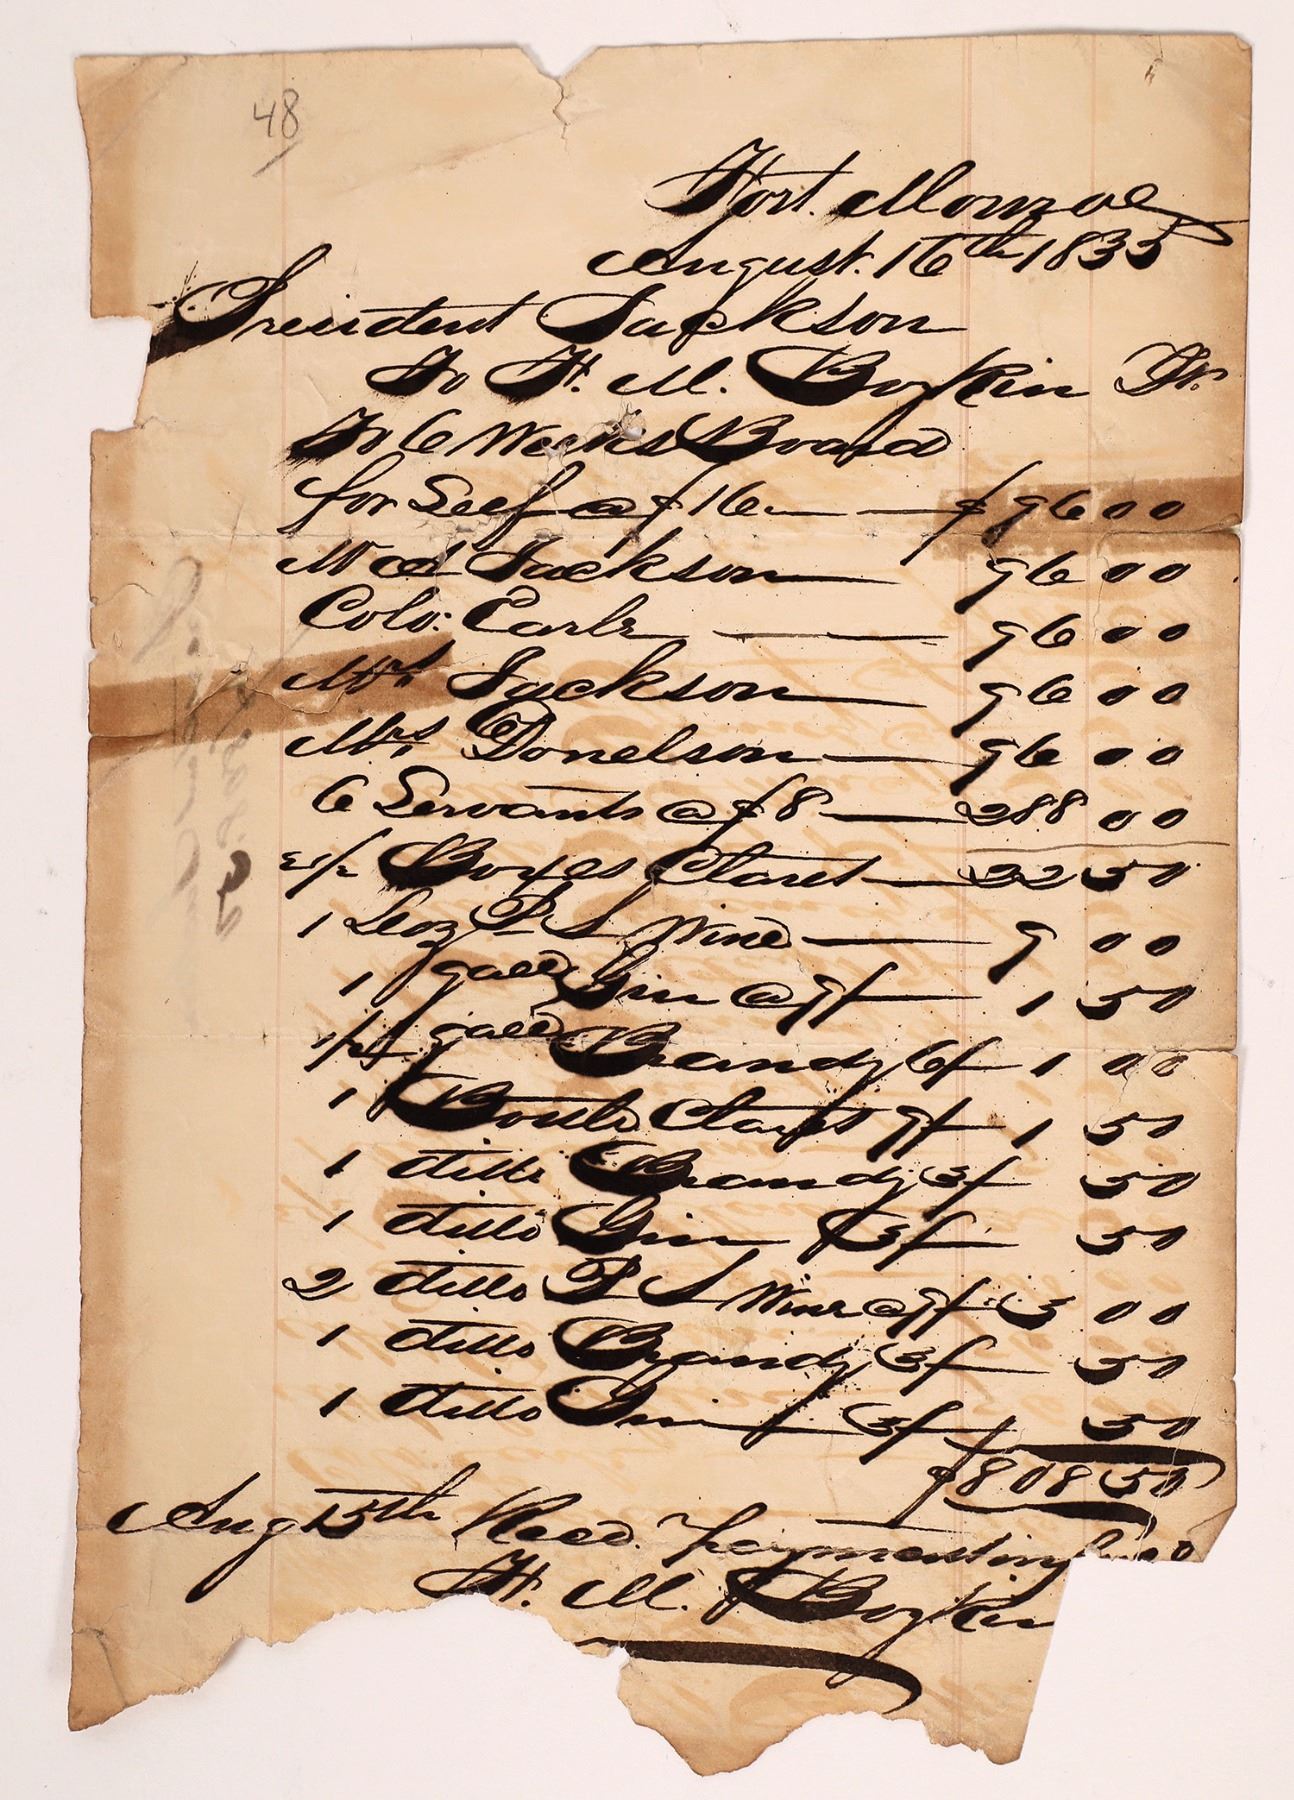 48
Fort. Monroe
August. 16th 1835
President Jackson
To F. M. Boykin Dr.
To 6 Weeks Board
for Self @ $16 — $96 00
Jackson — 96 00
Colo: Earle — 96 00
Mrs Jackson — 96 00
Mrs Donelson — 96 00
6 Servants @ $8 — 288 00
Boxes Claret — 22 50
1 Doz P S Wine — 9 00
1 gall Gin @ 9/ — 1 50
1/2 gall Brandy 6/ 1 00
1 Bottle Claret 9/ 1 50
1 ditto Brandy 3/ 50
1 ditto Gin 3/ 50
2 ditto P S Wine @ 9/ 3 00
1 ditto Brandy 3/ 50
1 ditto Gin 3/ 50
$808 50
Aug 15th Recd. Payment
F. M. Boykin